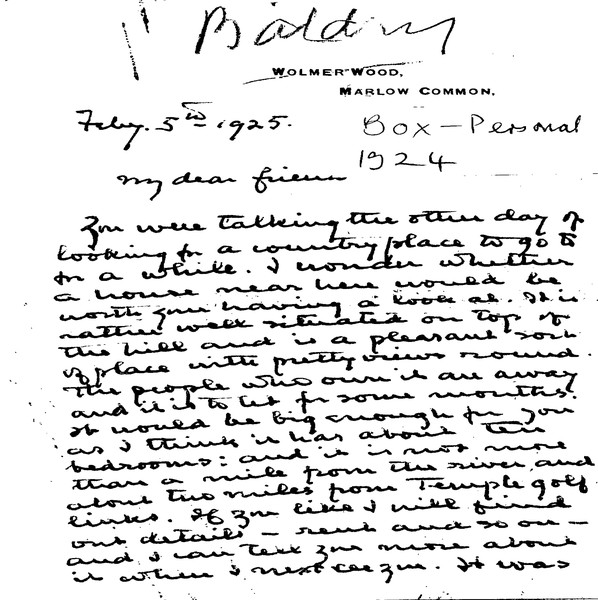 Baldry
WOLMER WOOD,
MARLOW COMMON.
Feby. 5th 1925.
Box - Personal
1924
My dear friend
You were talking the other day of
looking for a country place to go to
for a while. I wonder whether
a house near here would be
worth you having a look at. It is
rather well situated on top of
the hill and is a pleasant sort
of place with pretty views round.
The people who own it are away
and it is to let for some months.
It would be big enough for you
as I think it has about ten
bedrooms: and it is not more
than a mile from the river and
about two miles from Temple golf
links. If you like I will find
out details - rent and so on -
and I can tell you more about
it when I next see you. It was